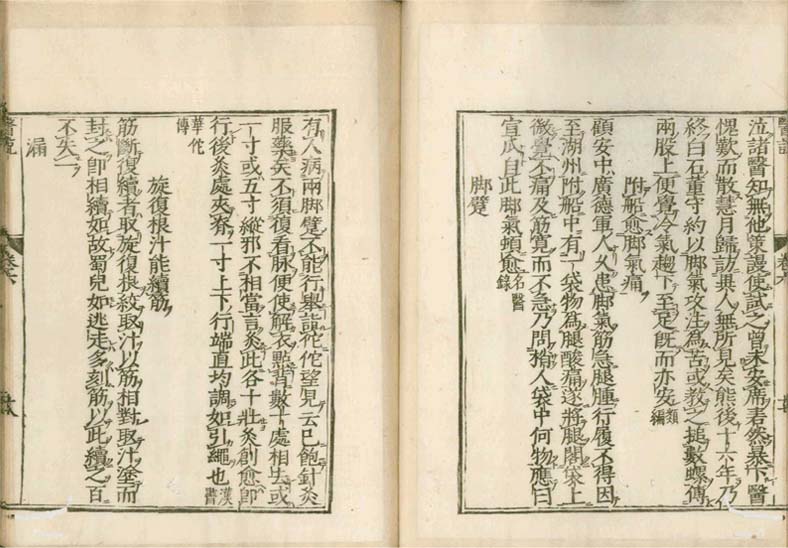 醫說
卷六
泣諸醫知無他策謾使試之曾未安席砉然暴下醫
愧歎而散慧月歸訪異人無所見矣熊後十六年乃
終白石董守約以脚氣攻注為苦或教之搥數螺傅
兩股上便覺冷氣趨下至足旣而亦安類編
附船愈脚氣痛
顧安中廣德軍人久患脚氣筋急腿腫行履不得因
至湖州附船中有一袋物為腿酸痛遂將腿閣袋上
微覺不痛及筋寬而不急乃問梢人袋中何物應曰
宣瓜自此脚氣頓愈名醫錄
脚躄
有人病兩脚躄不能行轝詣佗佗望見云已飽針灸
服藥矣不須復看脉便使解衣點背數十處相去或
一寸或五寸縱邪不相當言灸此各十壯灸創愈即
行後灸處夾脊一寸上下行端直均調如引繩也漢書
華佗傳
旋復根汁能續筋
筋斷復續者取旋復根絞取汁以筋相對取汁塗而
封之即相續如故蜀兒如逃走多刻筋以此續之百
不失一
漏
醫說
卷六